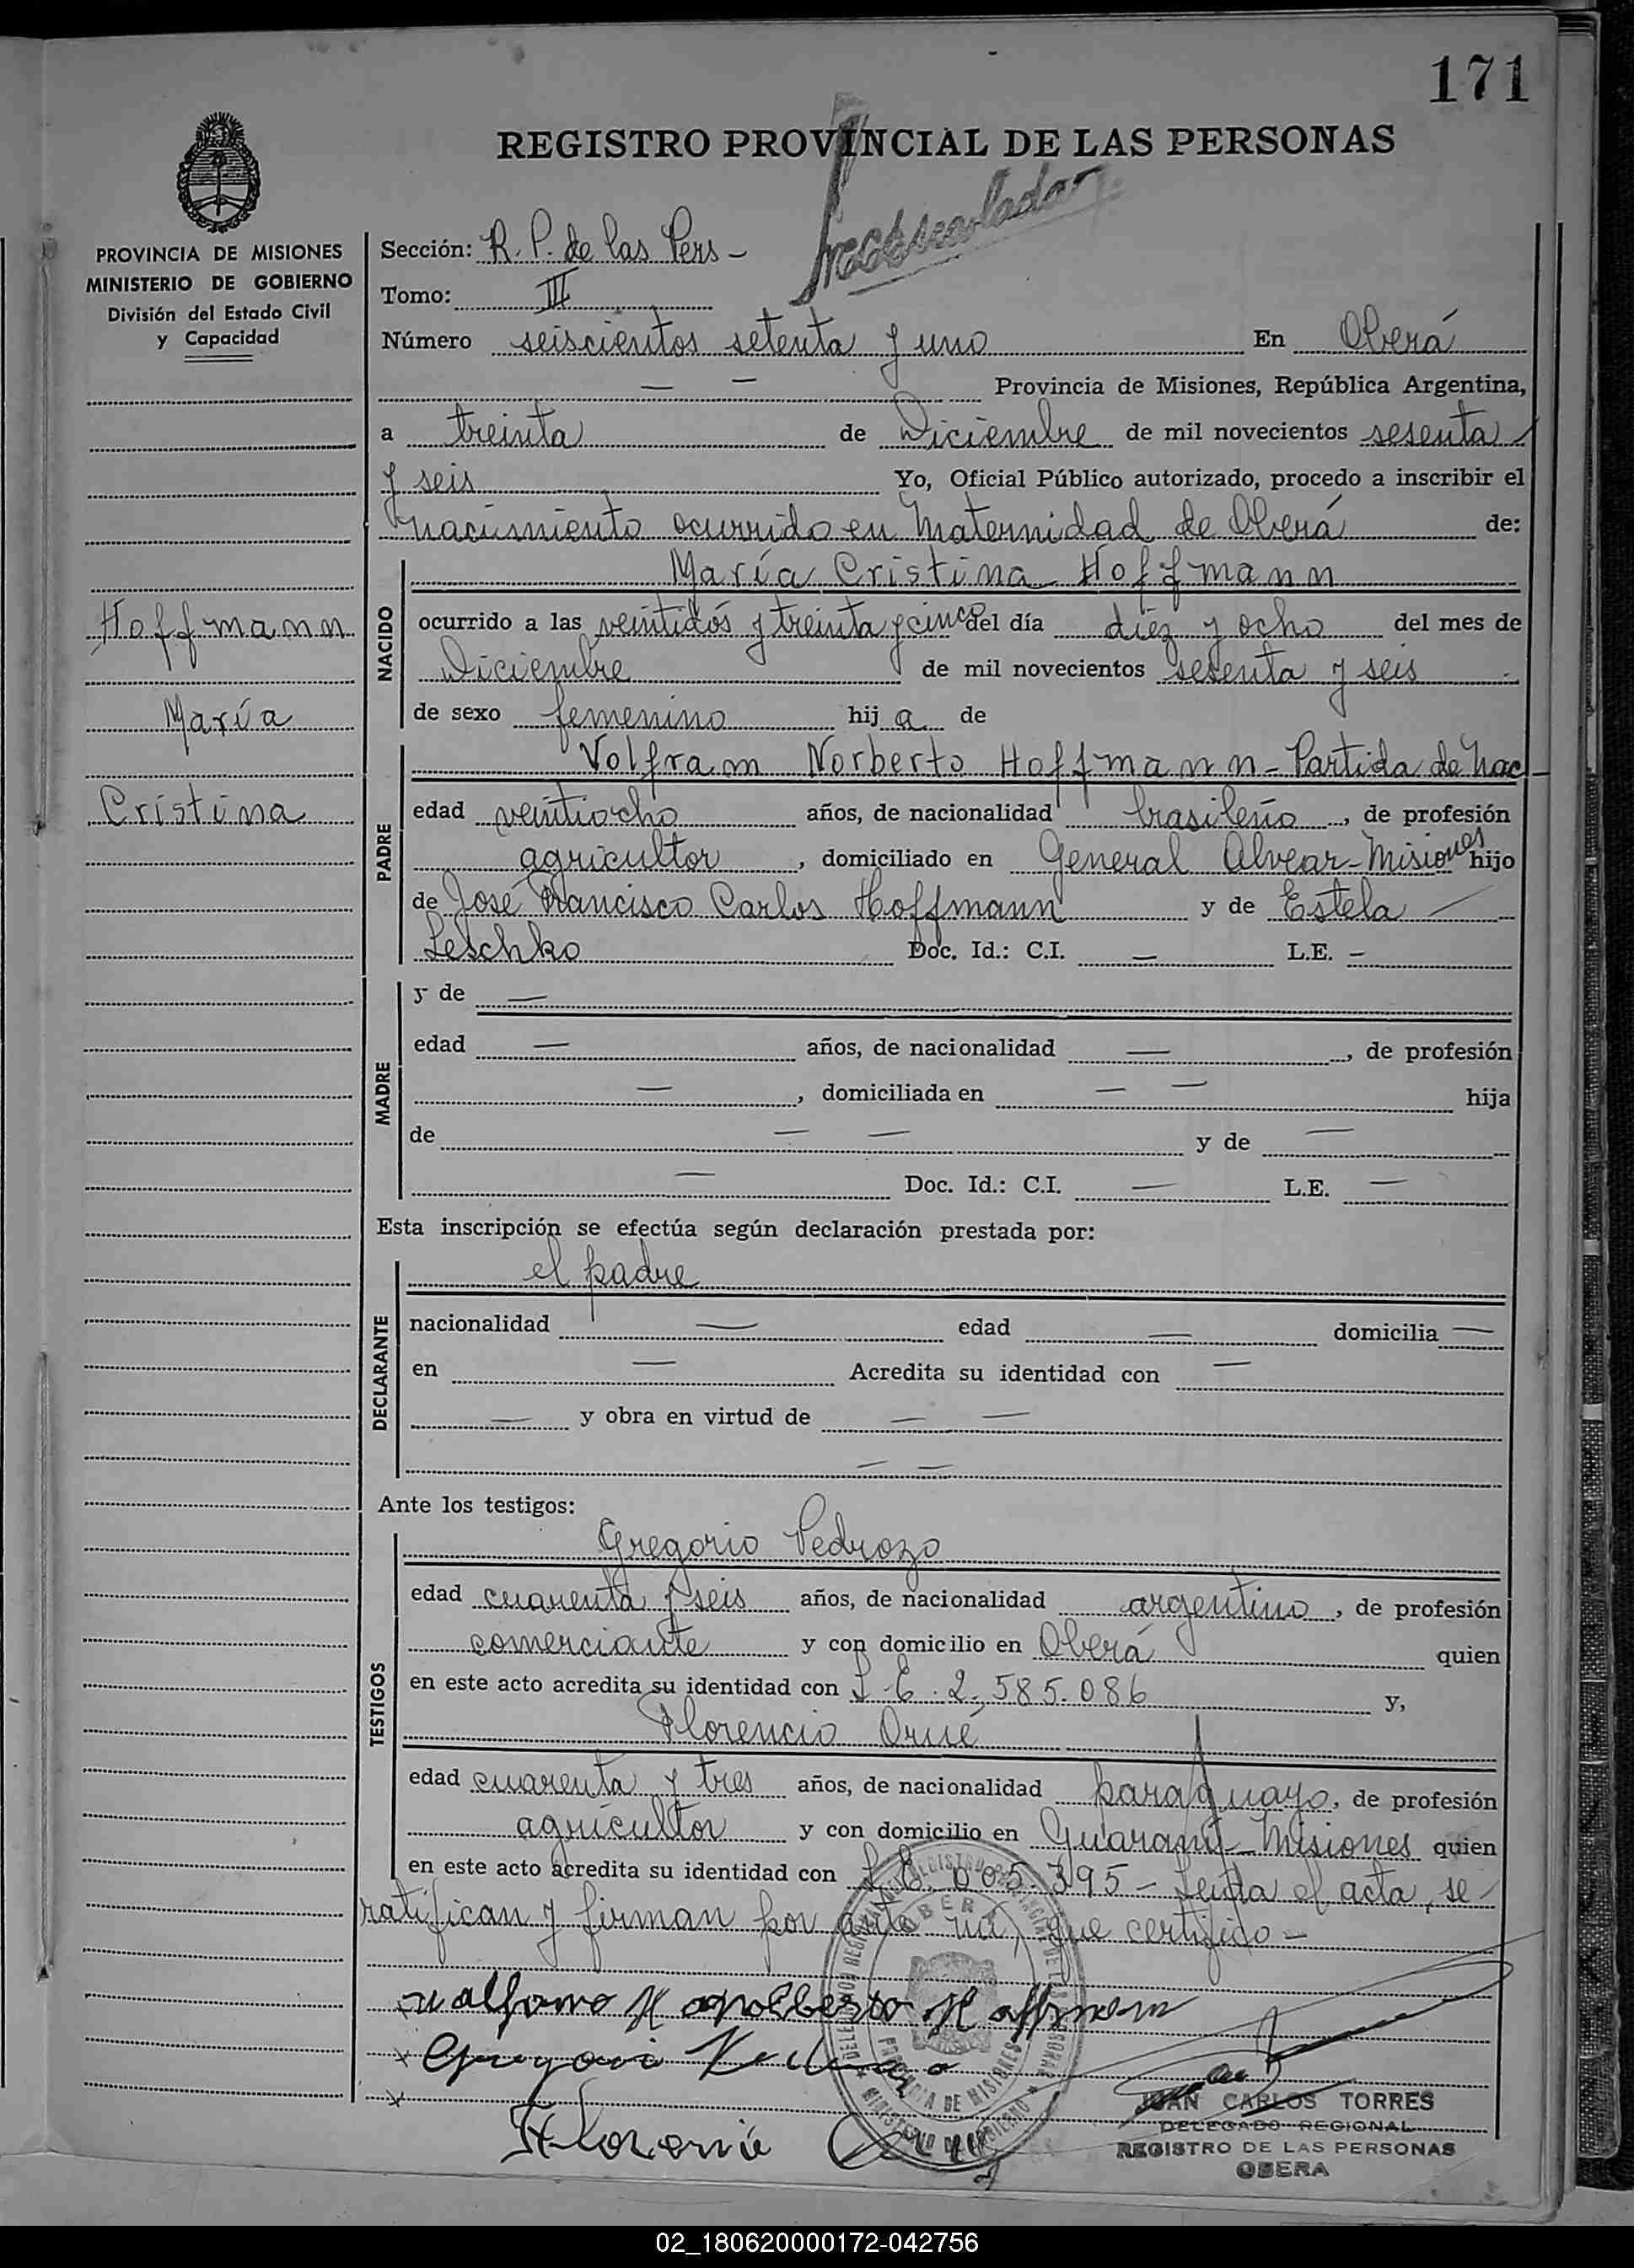 171
REGISTRO PROVINCIAL DE LAS PERSONAS
PROVINCIA DE MISIONES
MINISTERIO DE GOBIERNO
División del Estado Civil
y Capacidad
Sección: R. P. de las Pers -
Tomo: III
Número seiscientos setenta y uno En Oberá
— — Provincia de Misiones, República Argentina,
a treinta de Diciembre de mil novecientos sesenta
y seis Yo, Oficial Público autorizado, procedo a inscribir el
nacimiento ocurrido en Maternidad de Oberá de:
María Cristina Hoffmann
Hoffmann
María
Cristina
NACIDO
ocurrido a las veintidós y treinta y cinco del día diez y ocho del mes de
Diciembre de mil novecientos sesenta y seis
de sexo femenino hija de
PADRE
Volfram Norberto Hoffmann - Partida de Nac -
edad veintiocho años, de nacionalidad brasileño, de profesión
agricultor, domiciliado en General Alvear - Misiones hijo
de José Francisco Carlos Hoffmann y de Estela —
Leschko Doc. Id.: C.I. — L.E. —
MADRE
y de —
edad — años, de nacionalidad —, de profesión
—, domiciliada en — — hija
de — — y de —
— Doc. Id.: C.I. — L.E. —
Esta inscripción se efectúa según declaración prestada por:
DECLARANTE
el padre
nacionalidad — edad — domicilia —
en — Acredita su identidad con —
— y obra en virtud de — —
— —
Ante los testigos:
TESTIGOS
Gregorio Pedrozo
edad cuarenta y seis años, de nacionalidad argentino, de profesión
comerciante y con domicilio en Oberá quien
en este acto acredita su identidad con L.E. 2.585.086 y,
Florencio Orué
edad cuarenta y tres años, de nacionalidad paraguayo, de profesión
agricultor y con domicilio en Guaraní - Misiones quien
en este acto acredita su identidad con 005.395 - Leída el acta, se
ratifican y firman por ante mí, que certifico -
JUAN CARLOS TORRES
DELEGADO REGIONAL
REGISTRO DE LAS PERSONAS
OBERA
02_180620000172-042756